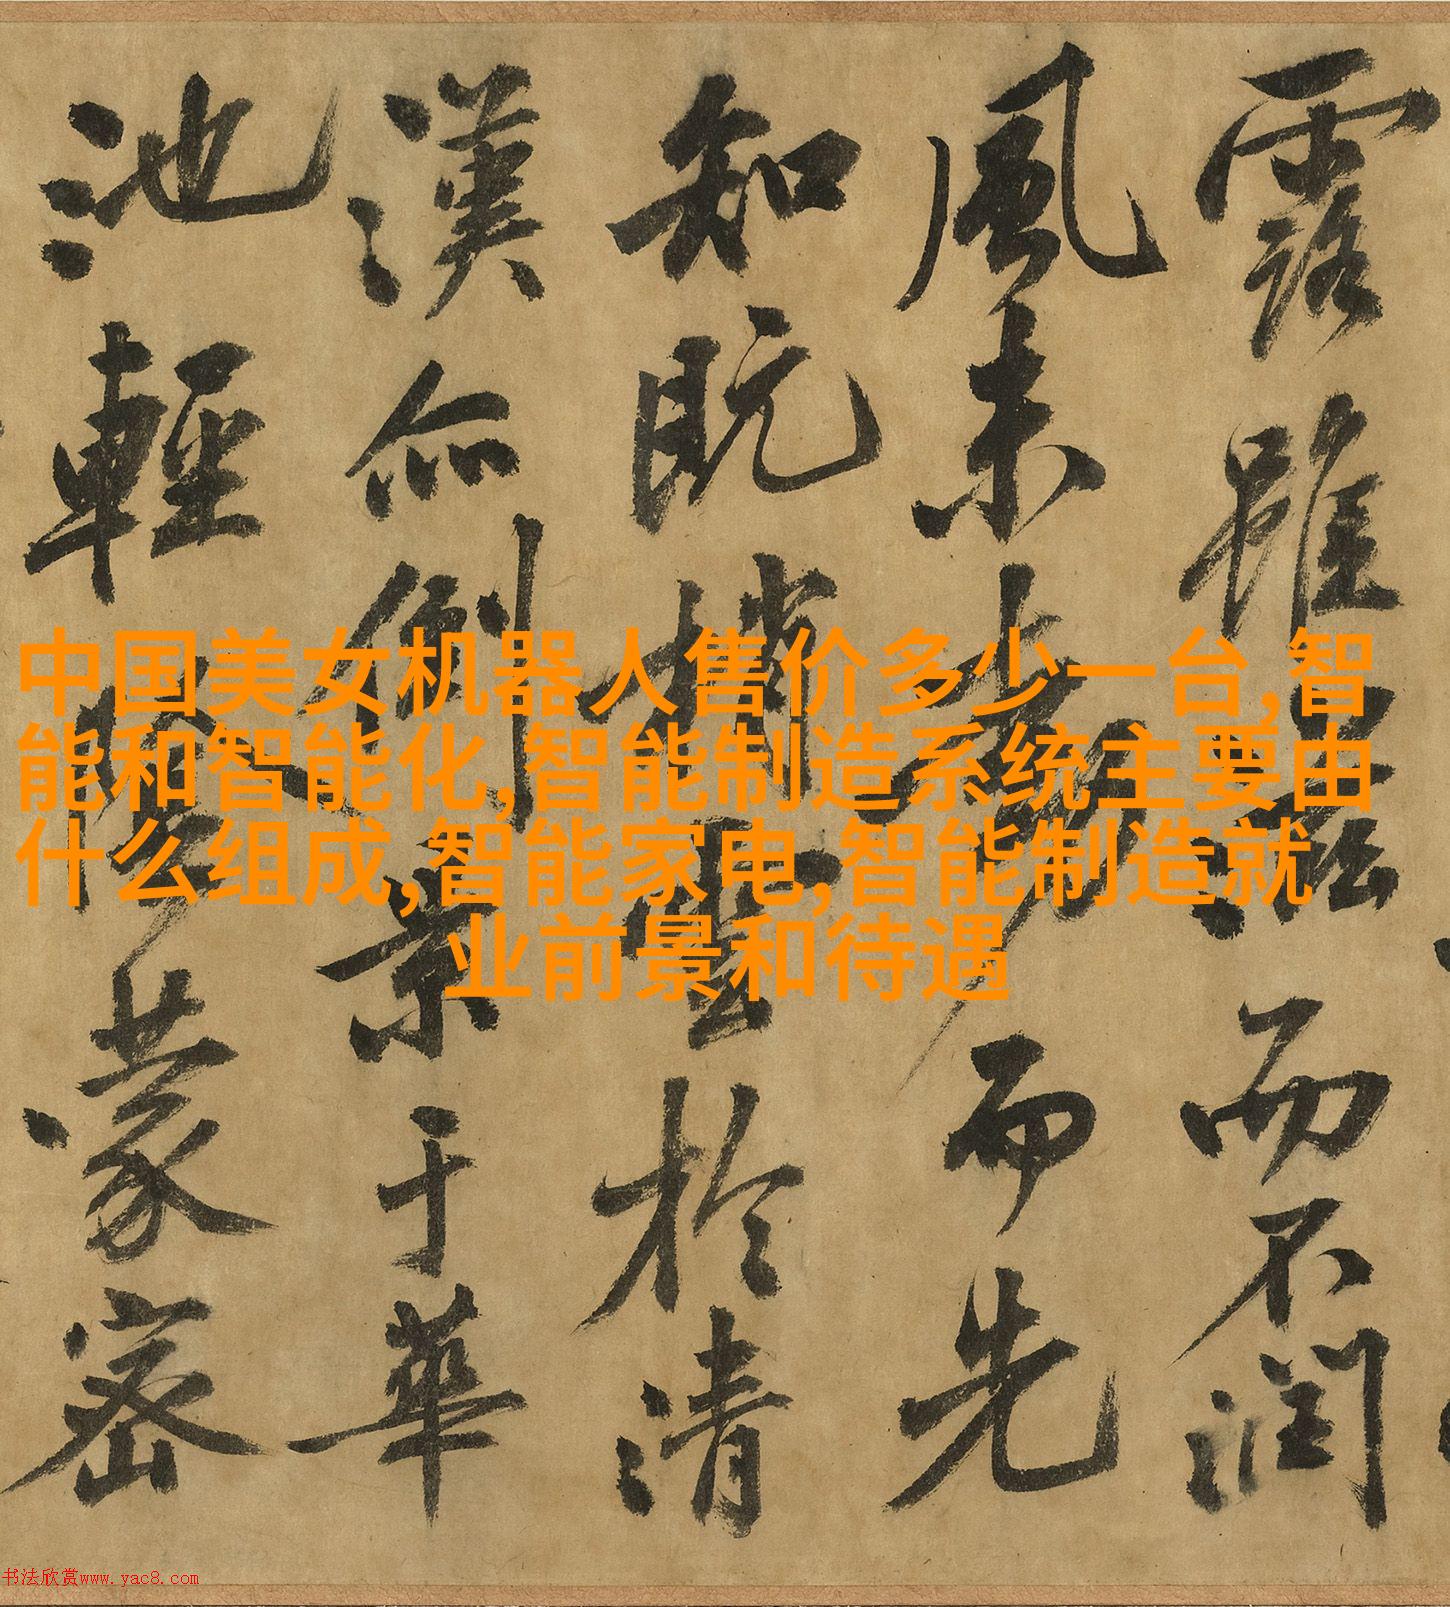 露雖而不潤
風未動而先
知既梢雲於清
漢亦倒景于華
池輕陰蒙密
中国美女机器人售价多少一台,智
能和智能化,智能制造系统主要由
什么组成,智能家电,智能制造就
业前景和待遇
书法欣赏www.yac8.com